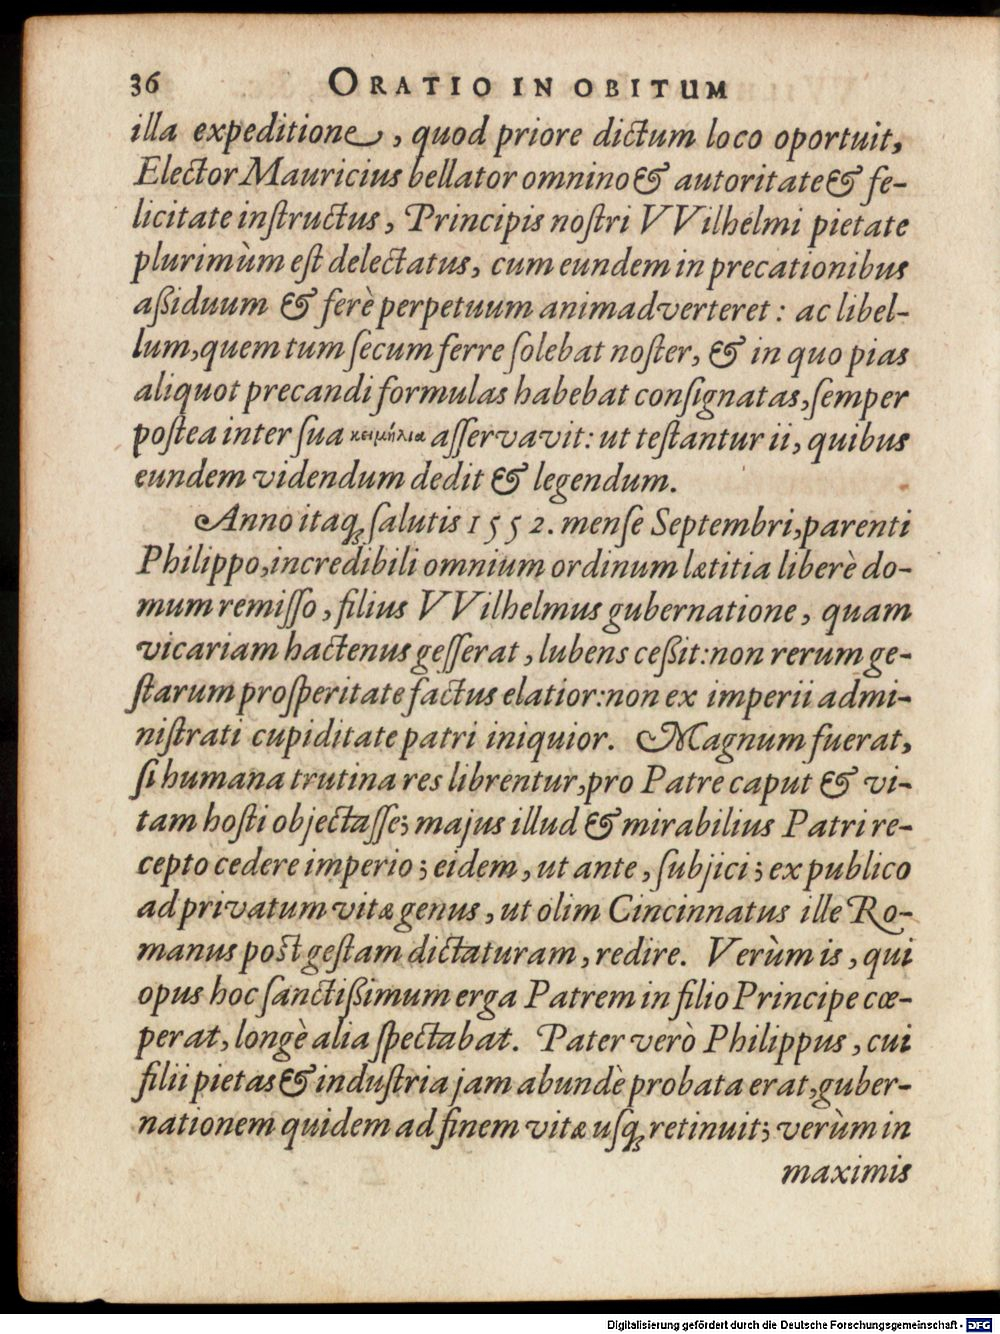 36 ORATIO IN OBITUM
illa expeditione, quod priore dictum loco oportuit,
Elector Mauricius bellator omnino & autoritate & fe-
licitate inſtructus, Principis noſtri VVilhelmi pietate
plurimùm eſt delectatus, cum eundem in precationibus
aßiduum & ferè perpetuum animadverteret: ac libel-
lum, quem tum ſecum ferre ſolebat noſter, & in quo pias
aliquot precandi formulas habebat conſignatas, ſemper
poſtea inter ſua κειμήλια aſſervavit: ut teſtantur ii, quibus
eundem videndum dedit & legendum.
Anno itaq; ſalutis 1552. menſe Septembri, parenti
Philippo, incredibili omnium ordinum lætitia liberè do-
mum remiſſo, filius VVilhelmus gubernatione, quam
vicariam hactenus geſſerat, lubens ceßit: non rerum ge-
ſtarum proſperitate factus elatior: non ex imperii admi-
niſtrati cupiditate patri iniquior. Magnum fuerat,
ſi humana trutina res librentur, pro Patre caput & vi-
tam hoſti objectaſſe; majus illud & mirabilius Patri re-
cepto cedere imperio; eidem, ut ante, ſubjici; ex publico
ad privatum vitæ genus, ut olim Cincinnatus ille Ro-
manus poſt geſtam dictaturam, redire. Verùm is, qui
opus hoc ſanctißimum erga Patrem in filio Principe cœ-
perat, longè alia ſpectabat. Pater verò Philippus, cui
filii pietas & induſtria jam abundè probata erat, guber-
nationem quidem ad finem vitæ uſq; retinuit; verùm in
maximis
Digitalisierung gefördert durch die Deutsche Forschungsgemeinschaft - DFG